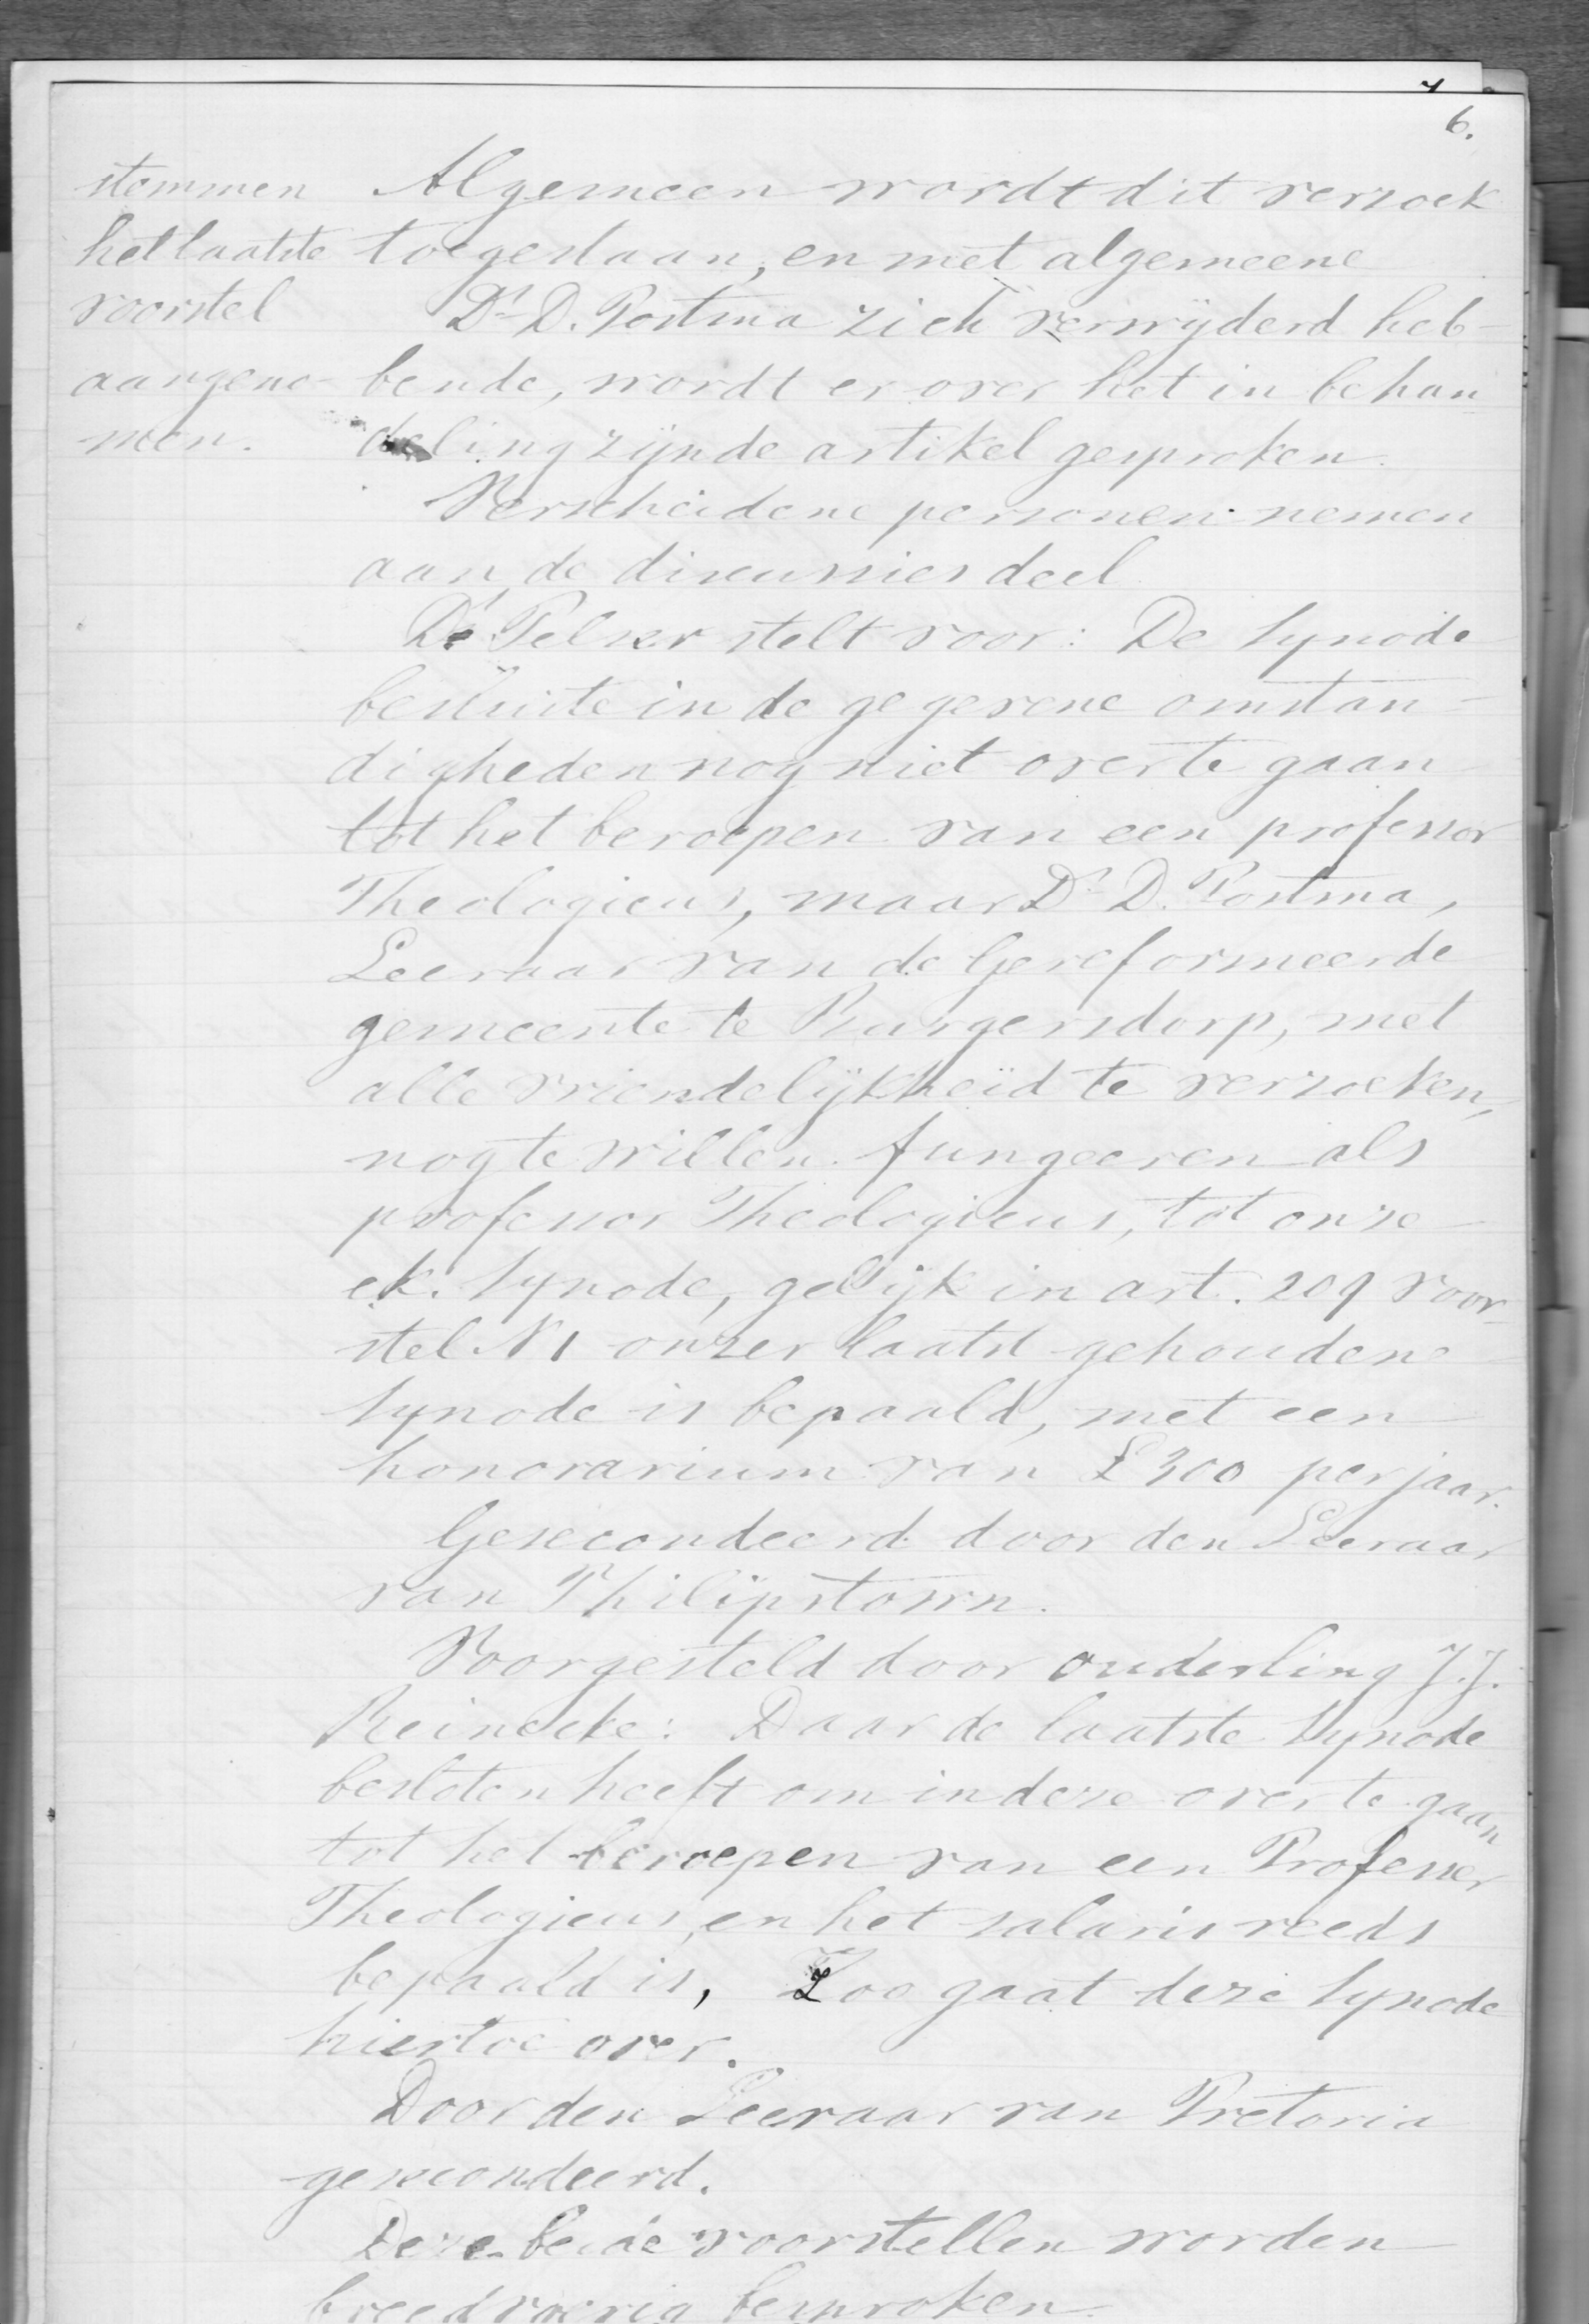 6.
stemmen
het laatste
voorstel
aangeno-
men.
Algemeen wordt dit verzoek
toegestaan, en met algemeene
Ds D. Postma zich verwijderd heb-
bende, wordt er over het in behan-
deling zijnde artikel gesproken.
Verscheidene personen nemen
aan de discussies deel
Ds Pelser stelt voor: De Synode
besluite in de gegevene omstan-
digheden nog niet over te gaan
tot het beroepen van een professor
Theologicus, maar Ds D. Postma,
Leeraar van de Gereformeerde
gemeente te Burgersdorp, met
alle vriendelijkheid te verzoeken,
nog te willen fungeeren als
professor Theologicus, tot onze
ek. Synode, gelijk in art. 209 voor-
stel N1 onzer laatst gehoudene
Synode is bepaald, met een
honorarium van £300 per jaar.
Gesecondeerd door den Leeraar
van Philipstown.
Voorgesteld door ouderling J.J.
Reinecke: Daar de laatste Synode
besloten heeft om in deze over te gaan
tot het beroepen van een Professor
Theologicus, en het salaris reeds
bepaald is, Zoo gaat deze Synode
hiertoe over.
Door den Leeraar van Pretoria
gesecondeerd.
Deze beide voorstellen worden
breedvoerig besproken.